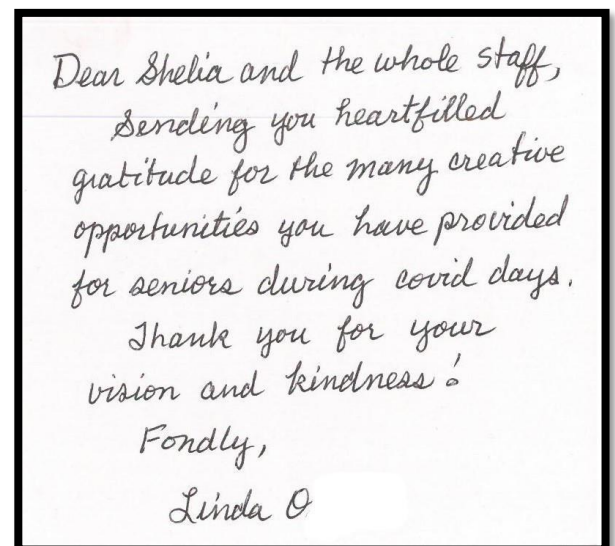 Dear Shelia and the whole staff,
Sending you heartfilled
gratitude for the many creative
opportunities you have provided
for seniors during covid days.
Thank you for your
vision and kindness!
Fondly,
Linda O